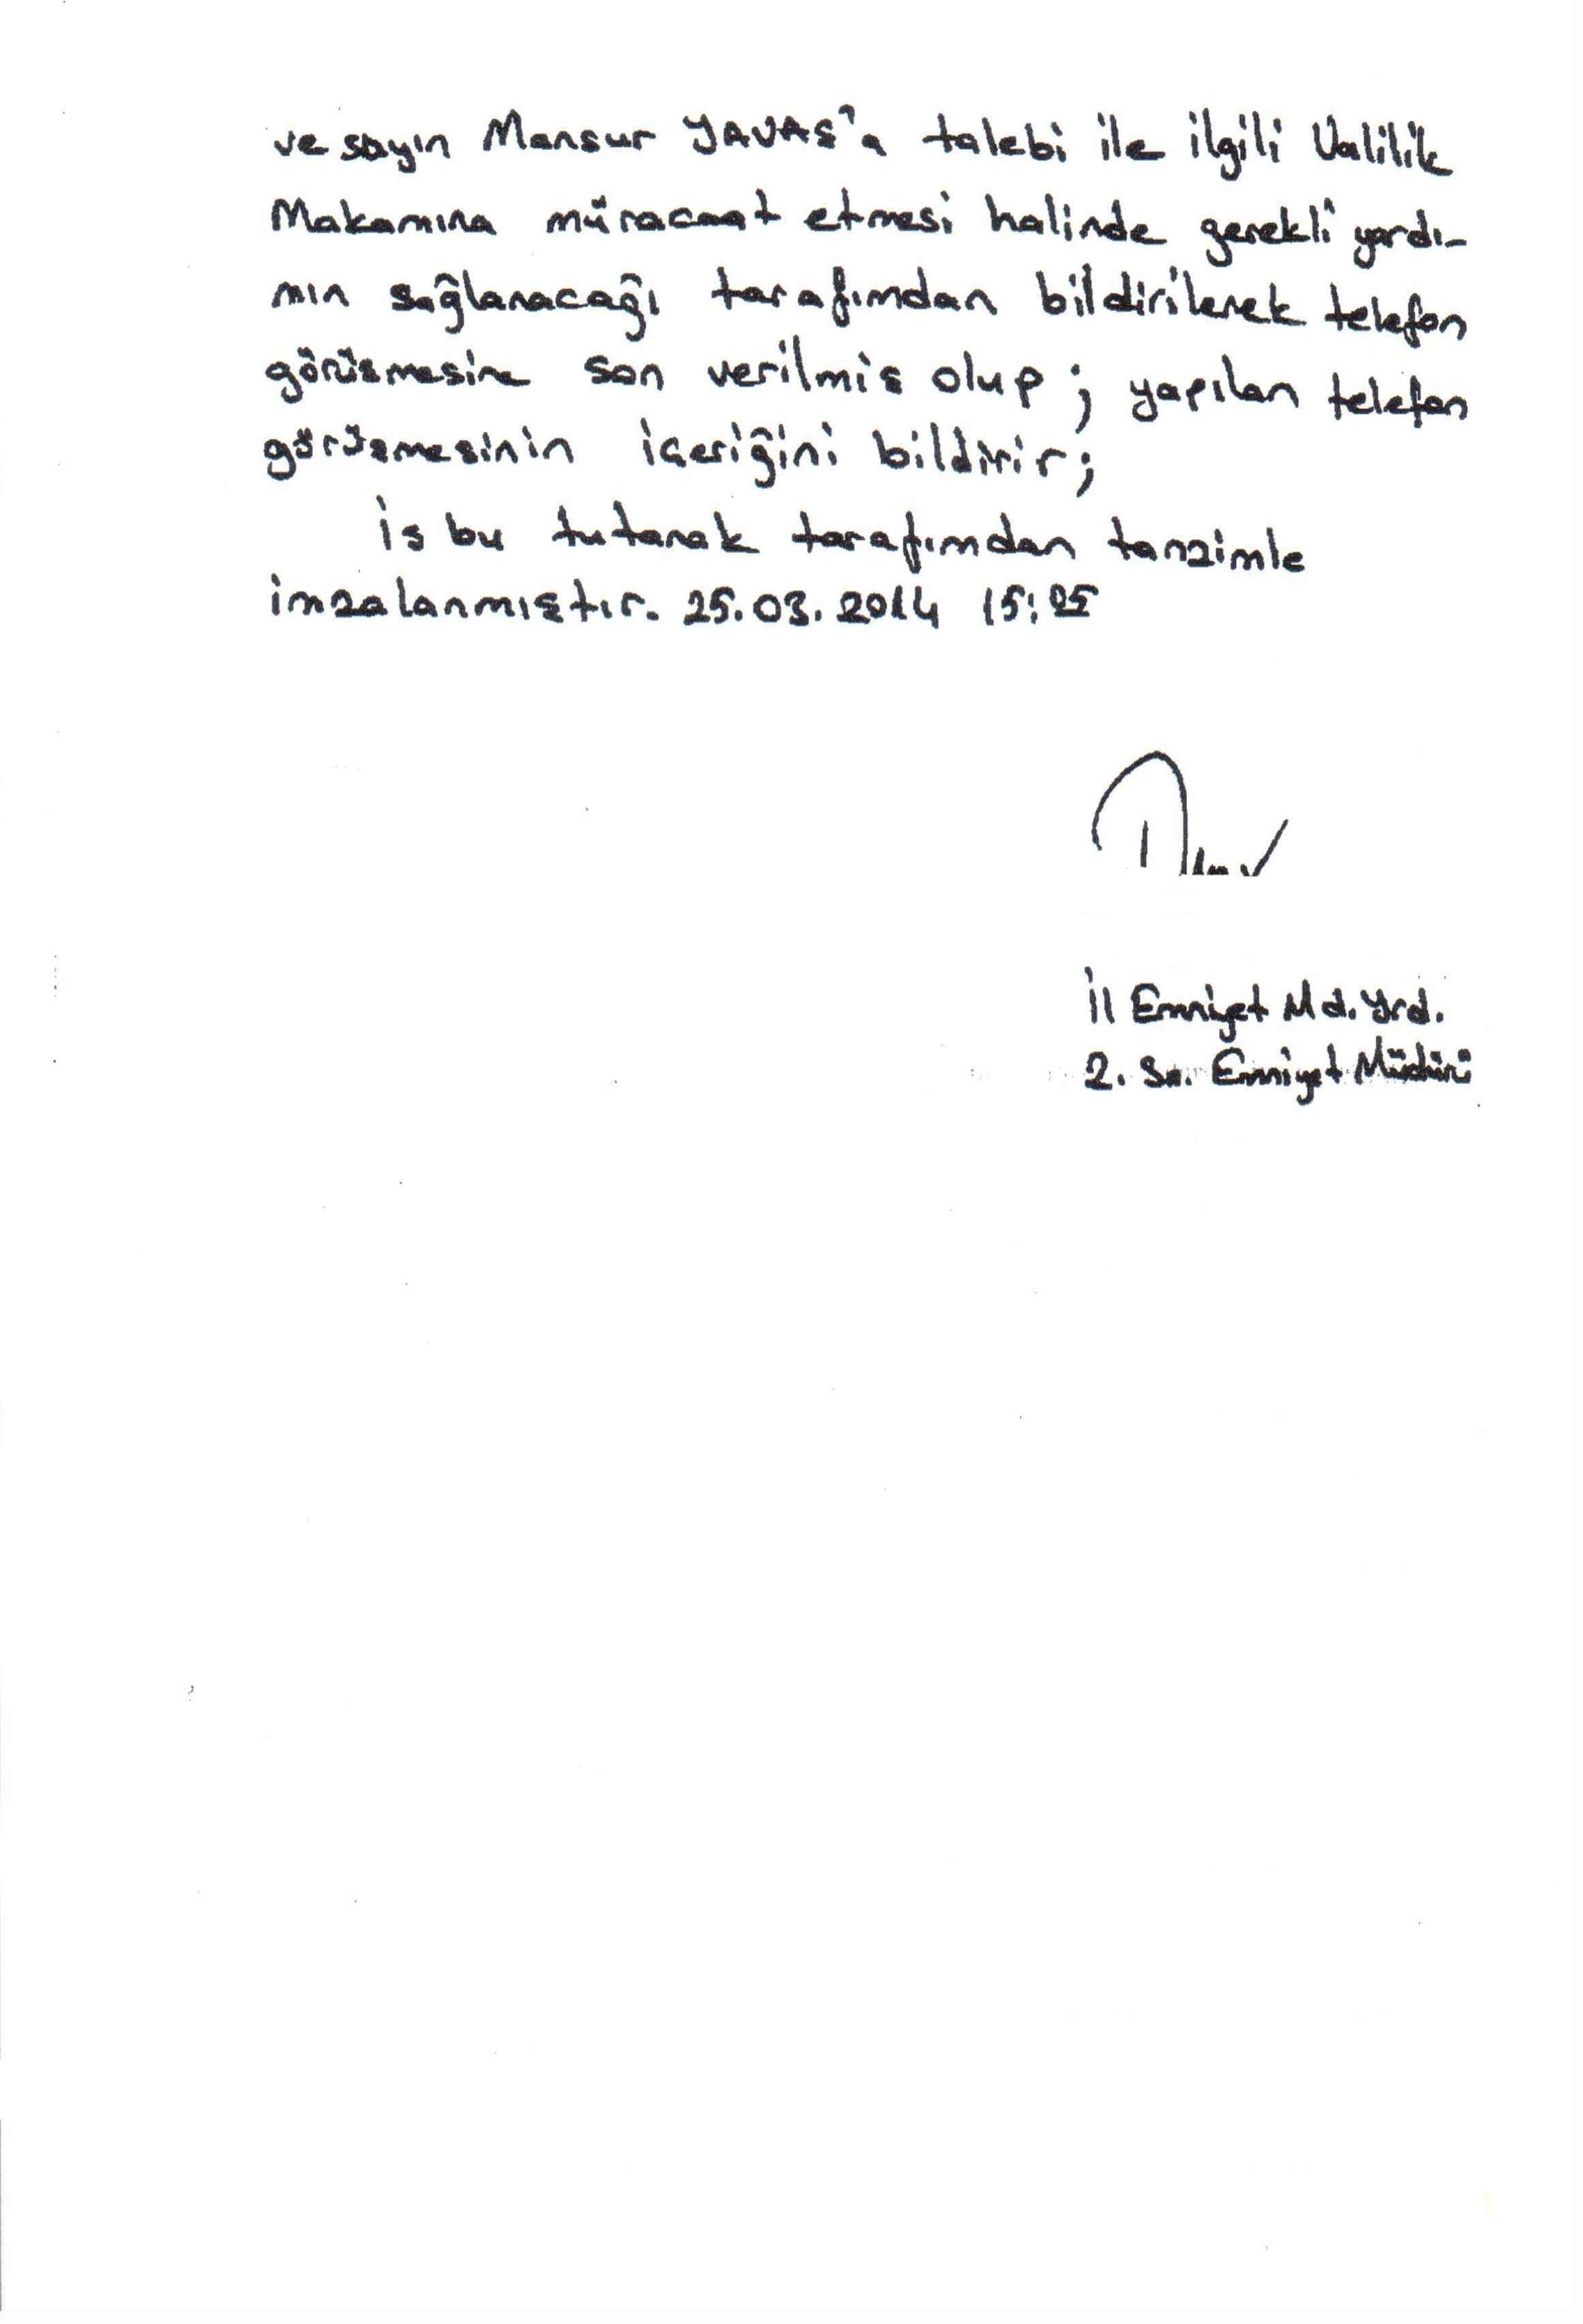 ve sayın Mansur YAVAŞ'a talebi ile ilgili Valilik
Makamına müracaat etmesi halinde gerekli yardı-
mın sağlanacağı tarafımdan bildirilerek telefon
görüşmesine son verilmiş olup; yapılan telefon
görüşmesinin içeriğini bildirir;
İş bu tutanak tarafımdan tanzimle
imzalanmıştır. 25.03.2014 15:25
İl Emniyet Md. Yrd.
2. Sn. Emniyet Müdürü